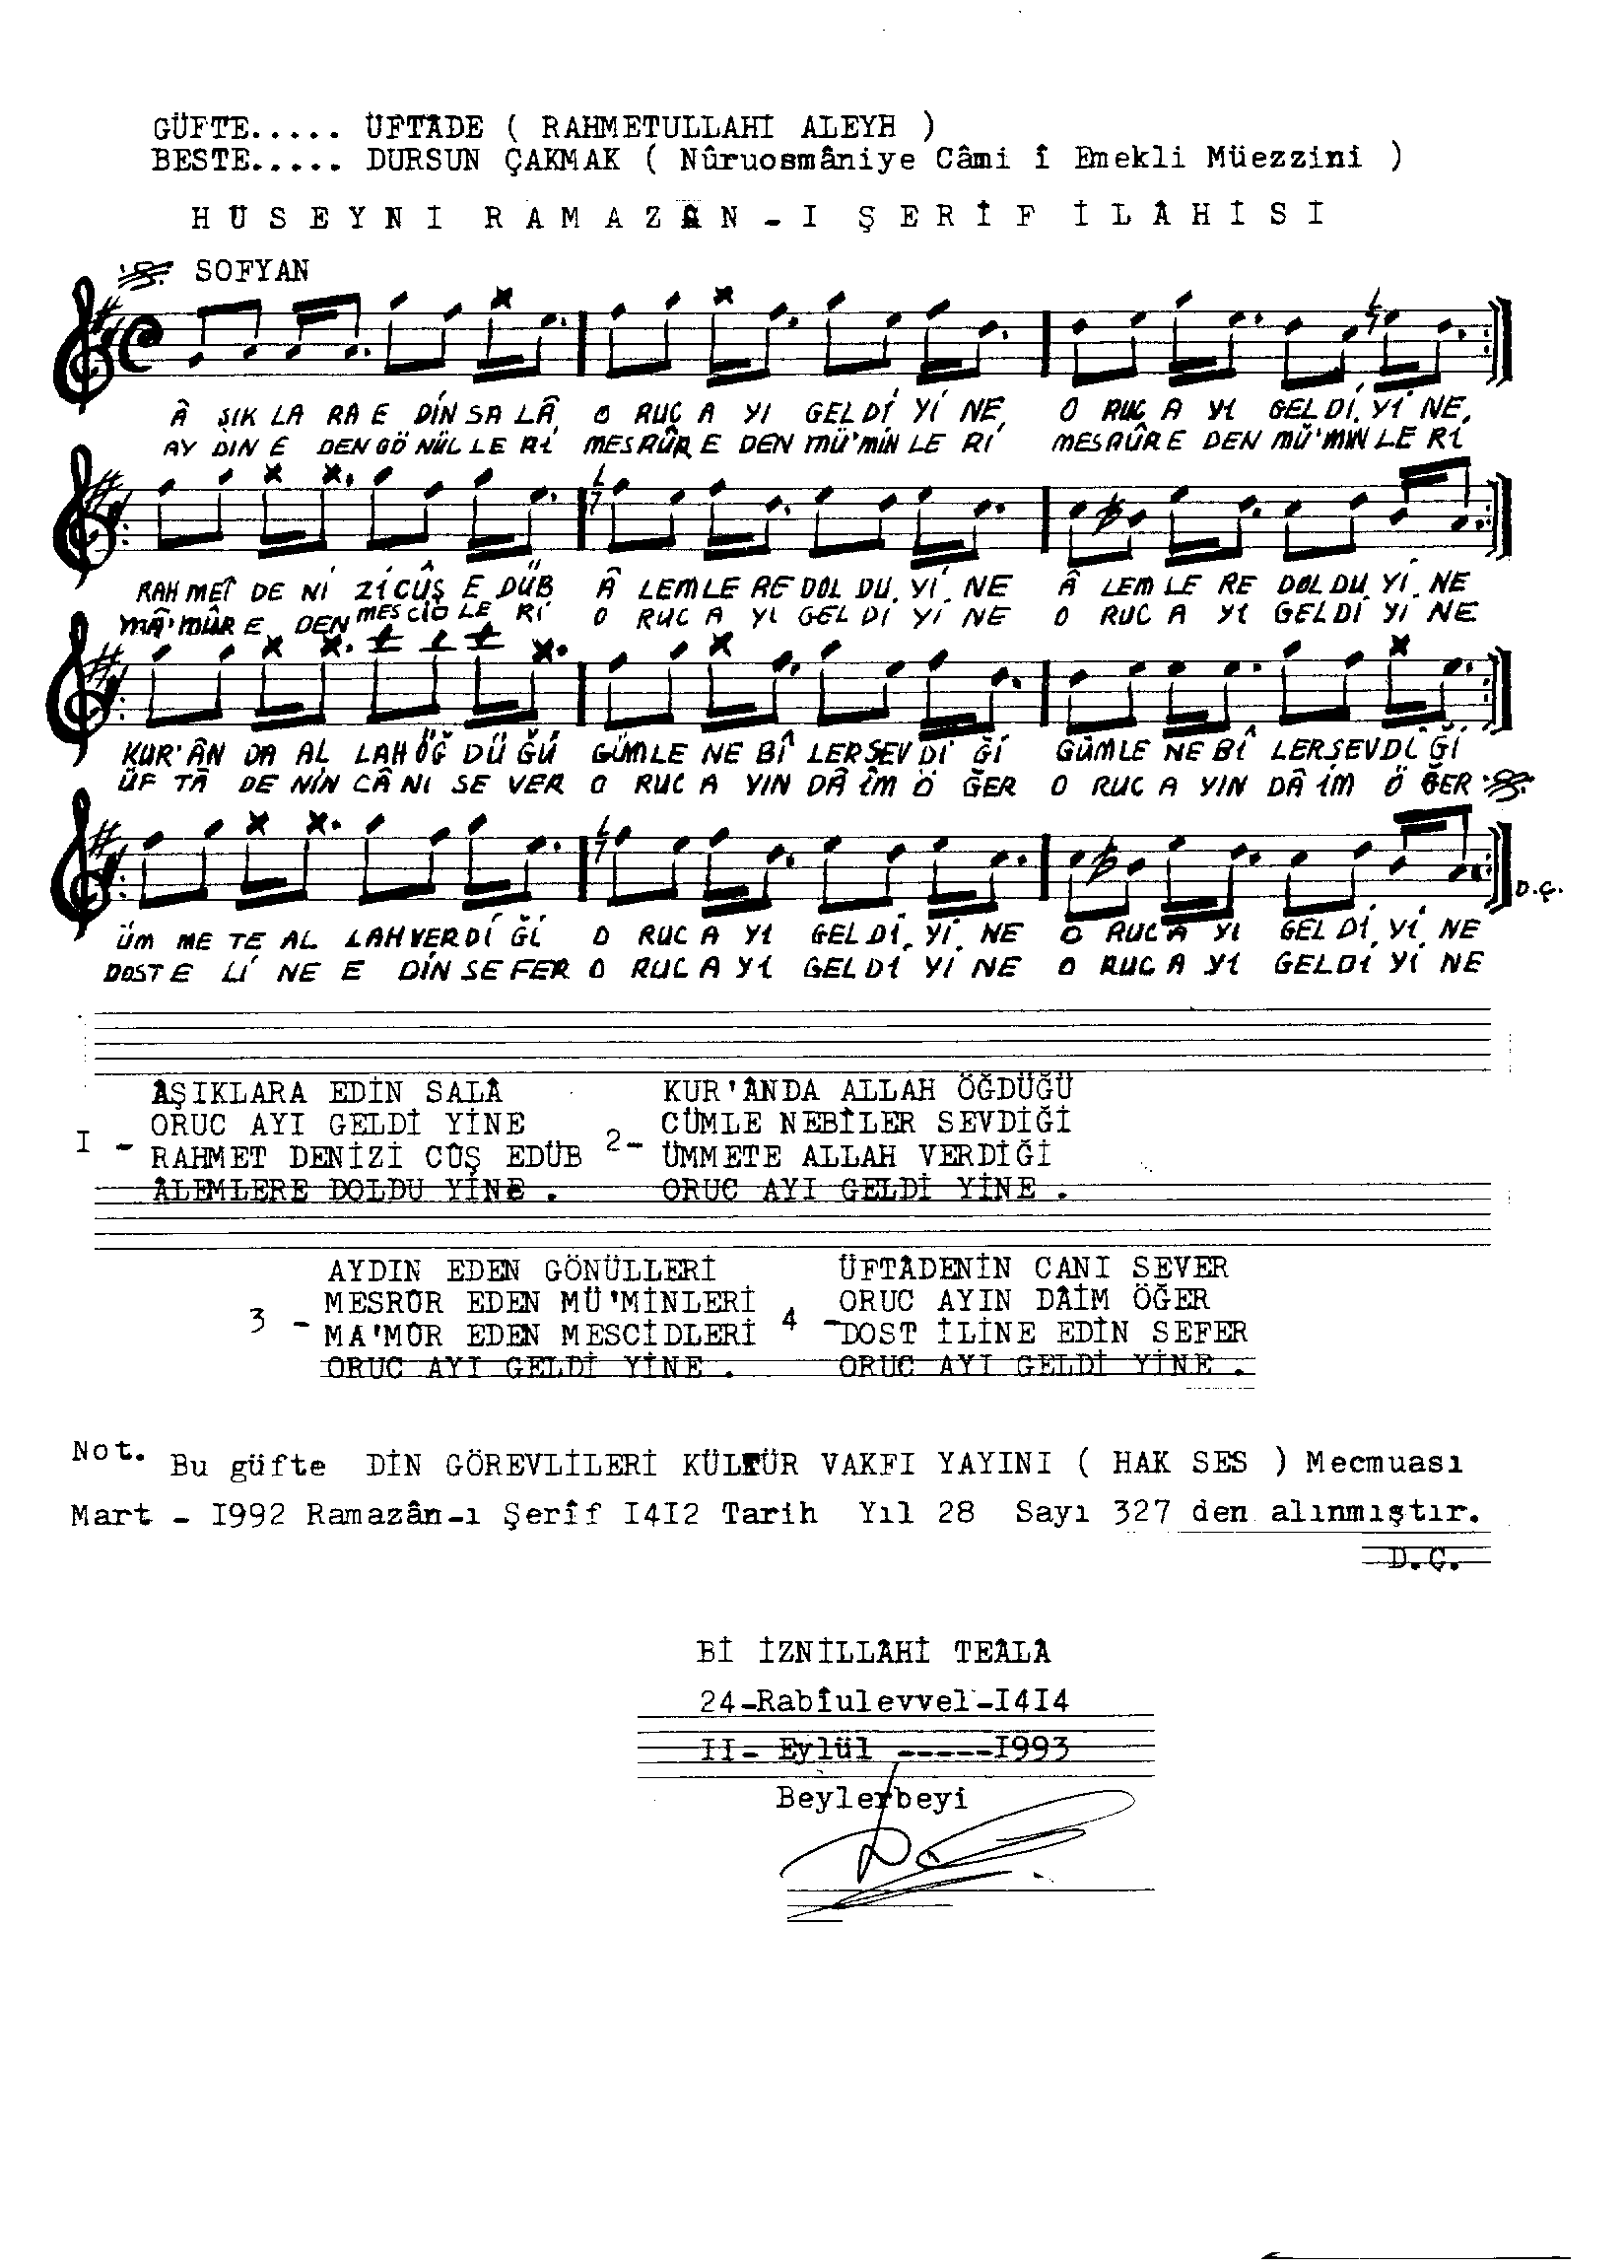 GÜFTE..... ÜFTÂDE ( RAHMETULLAHİ ALEYH )
BESTE..... DURSUN ÇAKMAK ( Nûruosmâniye Câmi î Emekli Müezzini )
HÜSEYNİ RAMAZÂN - I ŞERİF İLÂHİSİ
SOFYAN
Â ŞIK LA RA E DİN SA LÂ O RUC A YI GEL Dİ Yİ NE, O RUC A YI GEL Dİ, Yİ NE,
AY DIN E DEN GÖ NÜL LE Rİ MESRÛR E DEN MÜ'MİN LE Rİ MESRÛR E DEN MÜ'MİN LE Rİ
RAH MET DE Nİ Zİ CÛŞ E DÜB Â LEM LE RE DOL DU, Yİ. NE Â LEM LE RE DOL DU Yİ. NE
MÂ'MÛR E DEN MESCİD LE Rİ O RUC A YI GEL Dİ Yİ NE O RUC A YI GEL Dİ Yİ NE
KUR'ÂN DA AL LAH ÖĞ DÜ ĞÜ GÜMLE NE BÎ LER SEV Dİ Ğİ GÜMLE NE BÎ LER SEV Dİ Ğİ
ÜF TÂ DE NİN CÂ NI SE VER O RUC A YIN DÂ İM Ö ĞER O RUC A YIN DÂ İM Ö ĞER
ÜM ME TE AL LAH VER Dİ Ğİ O RUC A YI GEL Dİ, Yİ. NE O RUC A YI GEL Dİ, Yİ. NE
D.Ç.
DOST E Lİ NE E DİN SE FER O RUC A YI GEL Dİ Yİ NE O RUC A YI GEL Dİ Yİ NE
ÂŞIKLARA EDİN SALÂ KUR'ÂNDA ALLAH ÖĞDÜĞÜ
ORUC AYI GELDİ YİNE CÜMLE NEBÎLER SEVDİĞİ
I - RAHMET DENİZİ CÛŞ EDÜB 2- ÜMMETE ALLAH VERDİĞİ
ÂLEMLERE DOLDU YİNE . ORUC AYI GELDİ YİNE .
AYDIN EDEN GÖNÜLLERİ ÜFTÂDENİN CANI SEVER
MESRÛR EDEN MÜ'MİNLERİ ORUC AYIN DÂİM ÖĞER
3 - MA'MÛR EDEN MESCİDLERİ 4 - DOST İLİNE EDİN SEFER
ORUC AYI GELDİ YİNE . ORUC AYI GELDİ YİNE .
Not. Bu güfte DİN GÖREVLİLERİ KÜLTÜR VAKFI YAYINI ( HAK SES ) Mecmuası
Mart - I992 Ramazân-ı Şerîf I4I2 Tarih Yıl 28 Sayı 327 den alınmıştır.
D.Ç.
Bİ İZNİLLÂHİ TEÂLÂ
24-Rabîulevvel-I4I4
II- Eylül -----I993
Beylerbeyi